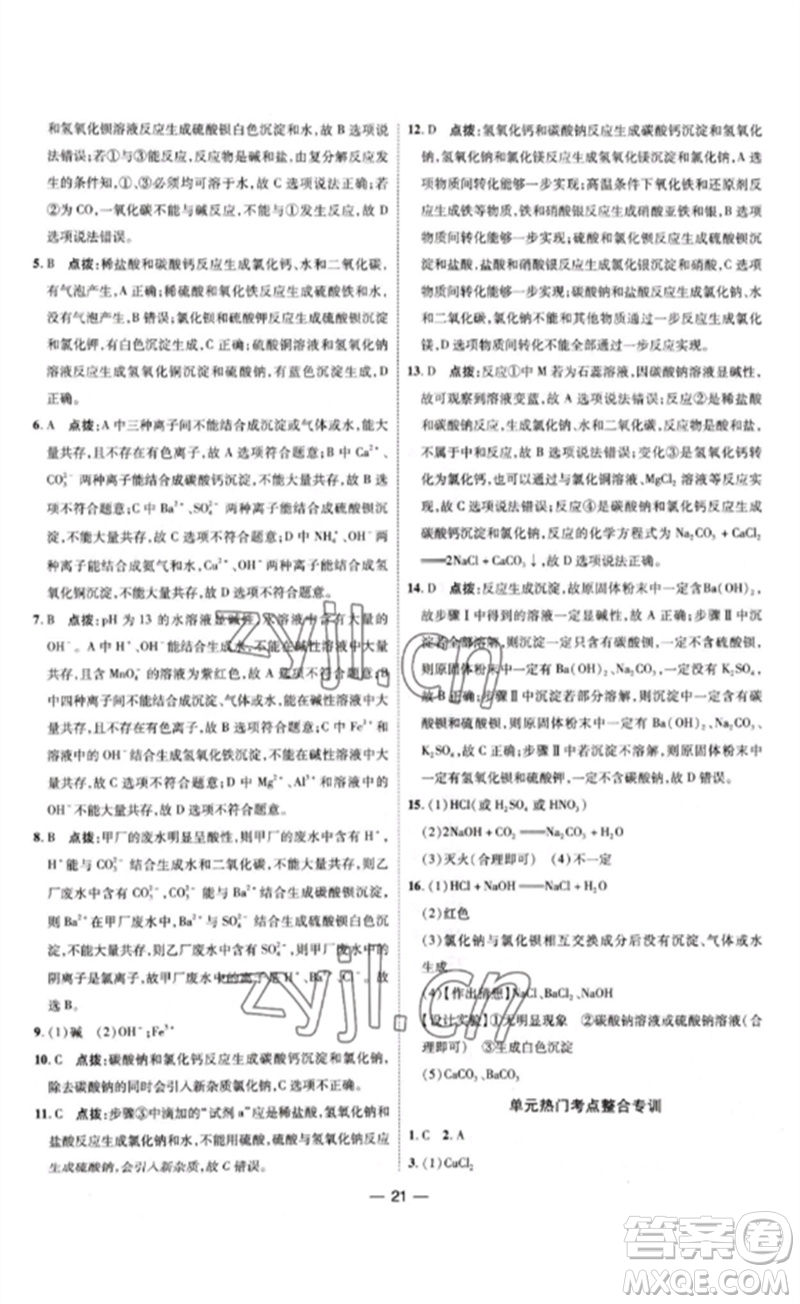 和氢氧化钡溶液反应生成硫酸钡白色沉淀和水,故 B 选项说
法错误;若①与③能反应,反应物是碱和盐,由复分解反应
的条件知,①、③必须均可溶于水,故 C 选项说法错误;若②
为 CO,一氧化碳不能与碱反应,不能与①发生反应,故 D
选项说法错误。
5. B 点拨:稀盐酸和碳酸钙反应生成氯化钙、水和二氧化碳,
有气泡产生,A 正确;稀硫酸和氧化铁反应生成硫酸铁和水,
没有气泡产生,B 错误;氯化钡和硫酸钾反应生成硫酸钡沉淀
和氯化钾,有白色沉淀生成,C 正确;硫酸铜溶液和氢氧化钠
溶液反应生成氢氧化铜沉淀和硫酸钠,有蓝色沉淀生成,D
正确。
6. A 点拨:A 中三种离子间不能结合成沉淀或气体或水,能大
量共存,且不存在有色离子,故 A 选项符合题意;B 中 Ca²⁺、
CO₃²⁻ 两种离子能结合成碳酸钙沉淀,不能大量共存,故 B
选项不符合题意;C 中 Ba²⁺、SO₄²⁻ 能结合成硫酸钡沉淀,不
能大量共存,故 C 选项不符合题意;D 中 NH₄⁺、OH⁻ 两
种离子能结合成氨气和水,Cu²⁺、OH⁻ 两种离子能结合成氢
氧化铜沉淀,故 D 选项不符合题意。
7. B 点拨:pH 为 13 的水溶液显碱性,水溶液中含有大量的
OH⁻。A 中 H⁺、OH⁻ 能结合成水,在碱性溶液中不能大量
共存,且含 MnO₄⁻ 的溶液为紫红色,故 A 选项不符合题意;
B 中四种离子间不能结合成沉淀、气体或水,能在碱性溶液中
大量共存,且不存在有色离子,故 B 选项符合题意;C 中 Fe³⁺ 和
溶液中的 OH⁻ 能结合成氢氧化铁沉淀,不能在碱性溶液中
大量共存,故 C 选项不符合题意;D 中 Mg²⁺、Al³⁺ 和溶液中
的 OH⁻ 能结合成沉淀,不能在碱性溶液中大量共存,
故 D 选项不符合题意。
8. B 点拨:甲厂的废水明显呈酸性,则甲厂废水中含有 H⁺,
H⁺ 能与 CO₃²⁻ 结合生成水和二氧化碳,不能共存,则乙
厂废水中含有 CO₃²⁻,CO₃²⁻ 与 Ba²⁺ 结合生成碳酸钡沉淀,
则 Ba²⁺ 在甲厂废水中,Ba²⁺ 与 SO₄²⁻ 结合生成硫酸钡白色沉
淀,不能共存,则乙厂废水中含有 SO₄²⁻,则甲厂废水中的
阴离子是氯离子,故甲厂废水中含有 H⁺、Ba²⁺、Cl⁻。故
选 B。
9. (1)碱 (2)OH⁻;Fe³⁺
10. C 点拨:碳酸钠和氯化钙反应生成碳酸钙沉淀和氯化钠,
除去碳酸钠的同时会引入新杂质氯化钠,故 C 错误。
11. C 点拨:步骤③中滴加的“试剂 a”应是稀盐酸,氢氧化钠和
盐酸反应生成氯化钠和水,不能用硫酸,硫酸与氢氧化钠反
应生成硫酸钠,会引入新杂质。故 C 错误。
12. D 点拨:氢氧化钙和碳酸钠反应生成碳酸钙沉淀和氢氧化
钠,氢氧化钠和氯化镁反应生成氢氧化镁沉淀和氯化钠,A
选项物质间转化能够一步实现;高温条件下氧化铁和还原剂反
应生成铁等物质,铁和硝酸银反应生成硝酸亚铁和银,B 选项
物质间转化能够一步实现;
选项物质间转化能够一步实现;碳酸钠和盐酸反应生成氯化钠、水和
二氧化碳,氯化钠不能和其他物质反应转化成氯化
镁,D 选项物质间转化不能全部通过一步反应实现。
13. D 点拨:反应①中 M 若为石蕊溶液,因碳酸钠溶液显碱性,
故可观察到溶液变蓝,故 A 选项说法错误;反应②是稀盐酸
和碳酸钠反应,生成氯化钠、水和二氧化碳,反应物是酸和盐,
不属于中和反应,故 B 选项说法错误;变化③是氢氧化钙转
化为氯化钙,可以与稀盐酸、氯化铜溶液、MgCl₂ 溶液等反应
实现,故 C 选项说法错误;反应④是碳酸钠和氯化钙反应生成
碳酸钙沉淀和氯化钠,反应的化学方程式为 Na₂CO₃ + CaCl₂
══2NaCl + CaCO₃↓,故 D 选项说法正确。
14. D 点拨:反应生成沉淀,故原固体粉末中一定含Ba(OH)₂,
故步骤Ⅰ中得到的溶液一定呈碱性,故 A 正确;步骤Ⅱ中沉
淀若全部溶解,则沉淀中一定含有碳酸钡,一定没有硫酸钡,
则原固体粉末中一定有 Ba(OH)₂、Na₂CO₃,一定没有 K₂SO₄,
故 B 正确;步骤Ⅱ中沉淀若部分溶解,则沉淀中一定含有碳
酸钡和硫酸钡,则原固体粉末中一定有 Ba(OH)₂、Na₂CO₃、
K₂SO₄,故 C 正确;步骤Ⅱ中沉淀若不溶解,则原固体粉末中一
定有氢氧化钡和硫酸钾,一定不含碳酸钠,故 D 错误。
15. (1)HCl(或 H₂SO₄ 或 HNO₃)
(2)2NaOH + CO₂══Na₂CO₃ + H₂O
(3)灭火(合理即可) (4)不一定
16. (1)HCl + NaOH══NaCl + H₂O
(2)红色
(3)氯化钠与氯化钡相互交换成分后没有沉淀、气体或水
生成
(4)【作出猜想】NaCl、BaCl₂、NaOH
【设计实验】①无明显现象 ②碳酸钠溶液或硫酸钠溶液(合
理即可) ③生成白色沉淀
(5)CaCO₃、BaCO₃
单元热门考点整合专训
1. C 2. A
3. (1)CuCl₂
— 21 —
zyjl.cn
zyjl.cn
答案卷
MXQE.COM